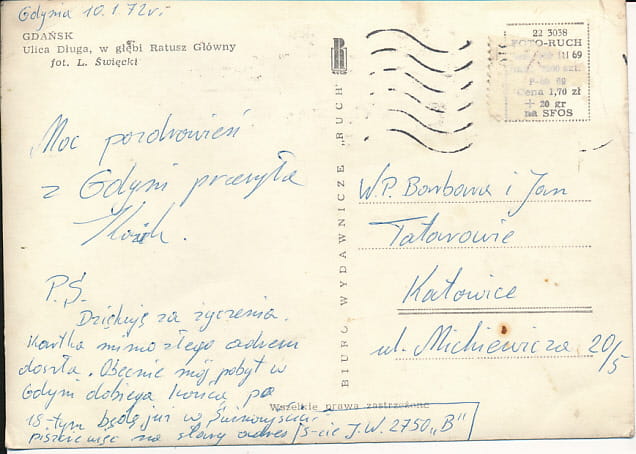 Gdynia 10.1.72r.
GDAŃSK
Ulica Długa, w głębi Ratusz Główny
fot. L. Święcki
Moc pozdrowień
z Gdyni przesyła
P.S.
Dziękuję za życzenia.
Kartka mimo złego adresu
doszła. Obecnie mój pobyt w
Gdyni dobiega końca, po
15-tym będę już w Świnoujściu
piszcie więc na stary adres /S-cie J.W. 2750 „B”
BIURO WYDAWNICZE „RUCH”
22 3038
FOTO-RUCH
III 69
Cena 1,70 zł
+ 20 gr
na SFOS
W.P. Barbara i Jan
Tatarowie
Katowice
ul. Mickiewicza 20/5
Wszelkie prawa zastrzeżone